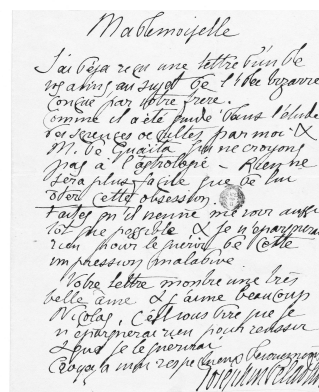 Mademoiselle
J'ai déja reçu une lettre d'un de
vos amis au sujet de l'idée bizarre
conçue par votre frère.
Comme il a été guidé dans l'étude
des sciences occultes par moi &
M. de Guaita qui ne croyons
pas à l'astrologie – Rien ne
sera plus facile que de lui
oter cette obsession.
Faites qu'il vienne me voir aussi
tot que possible & je n'épargnerai
rien pour le guérir de cette
impression maladive.
Votre lettre montre une très
belle âme & j'aime beaucoup
Nicolas, c'est vous dire que je
n'épargnerai rien pour réussir
& que je le guérirai
Croyez à mon respectueux
Joséphin Peladan